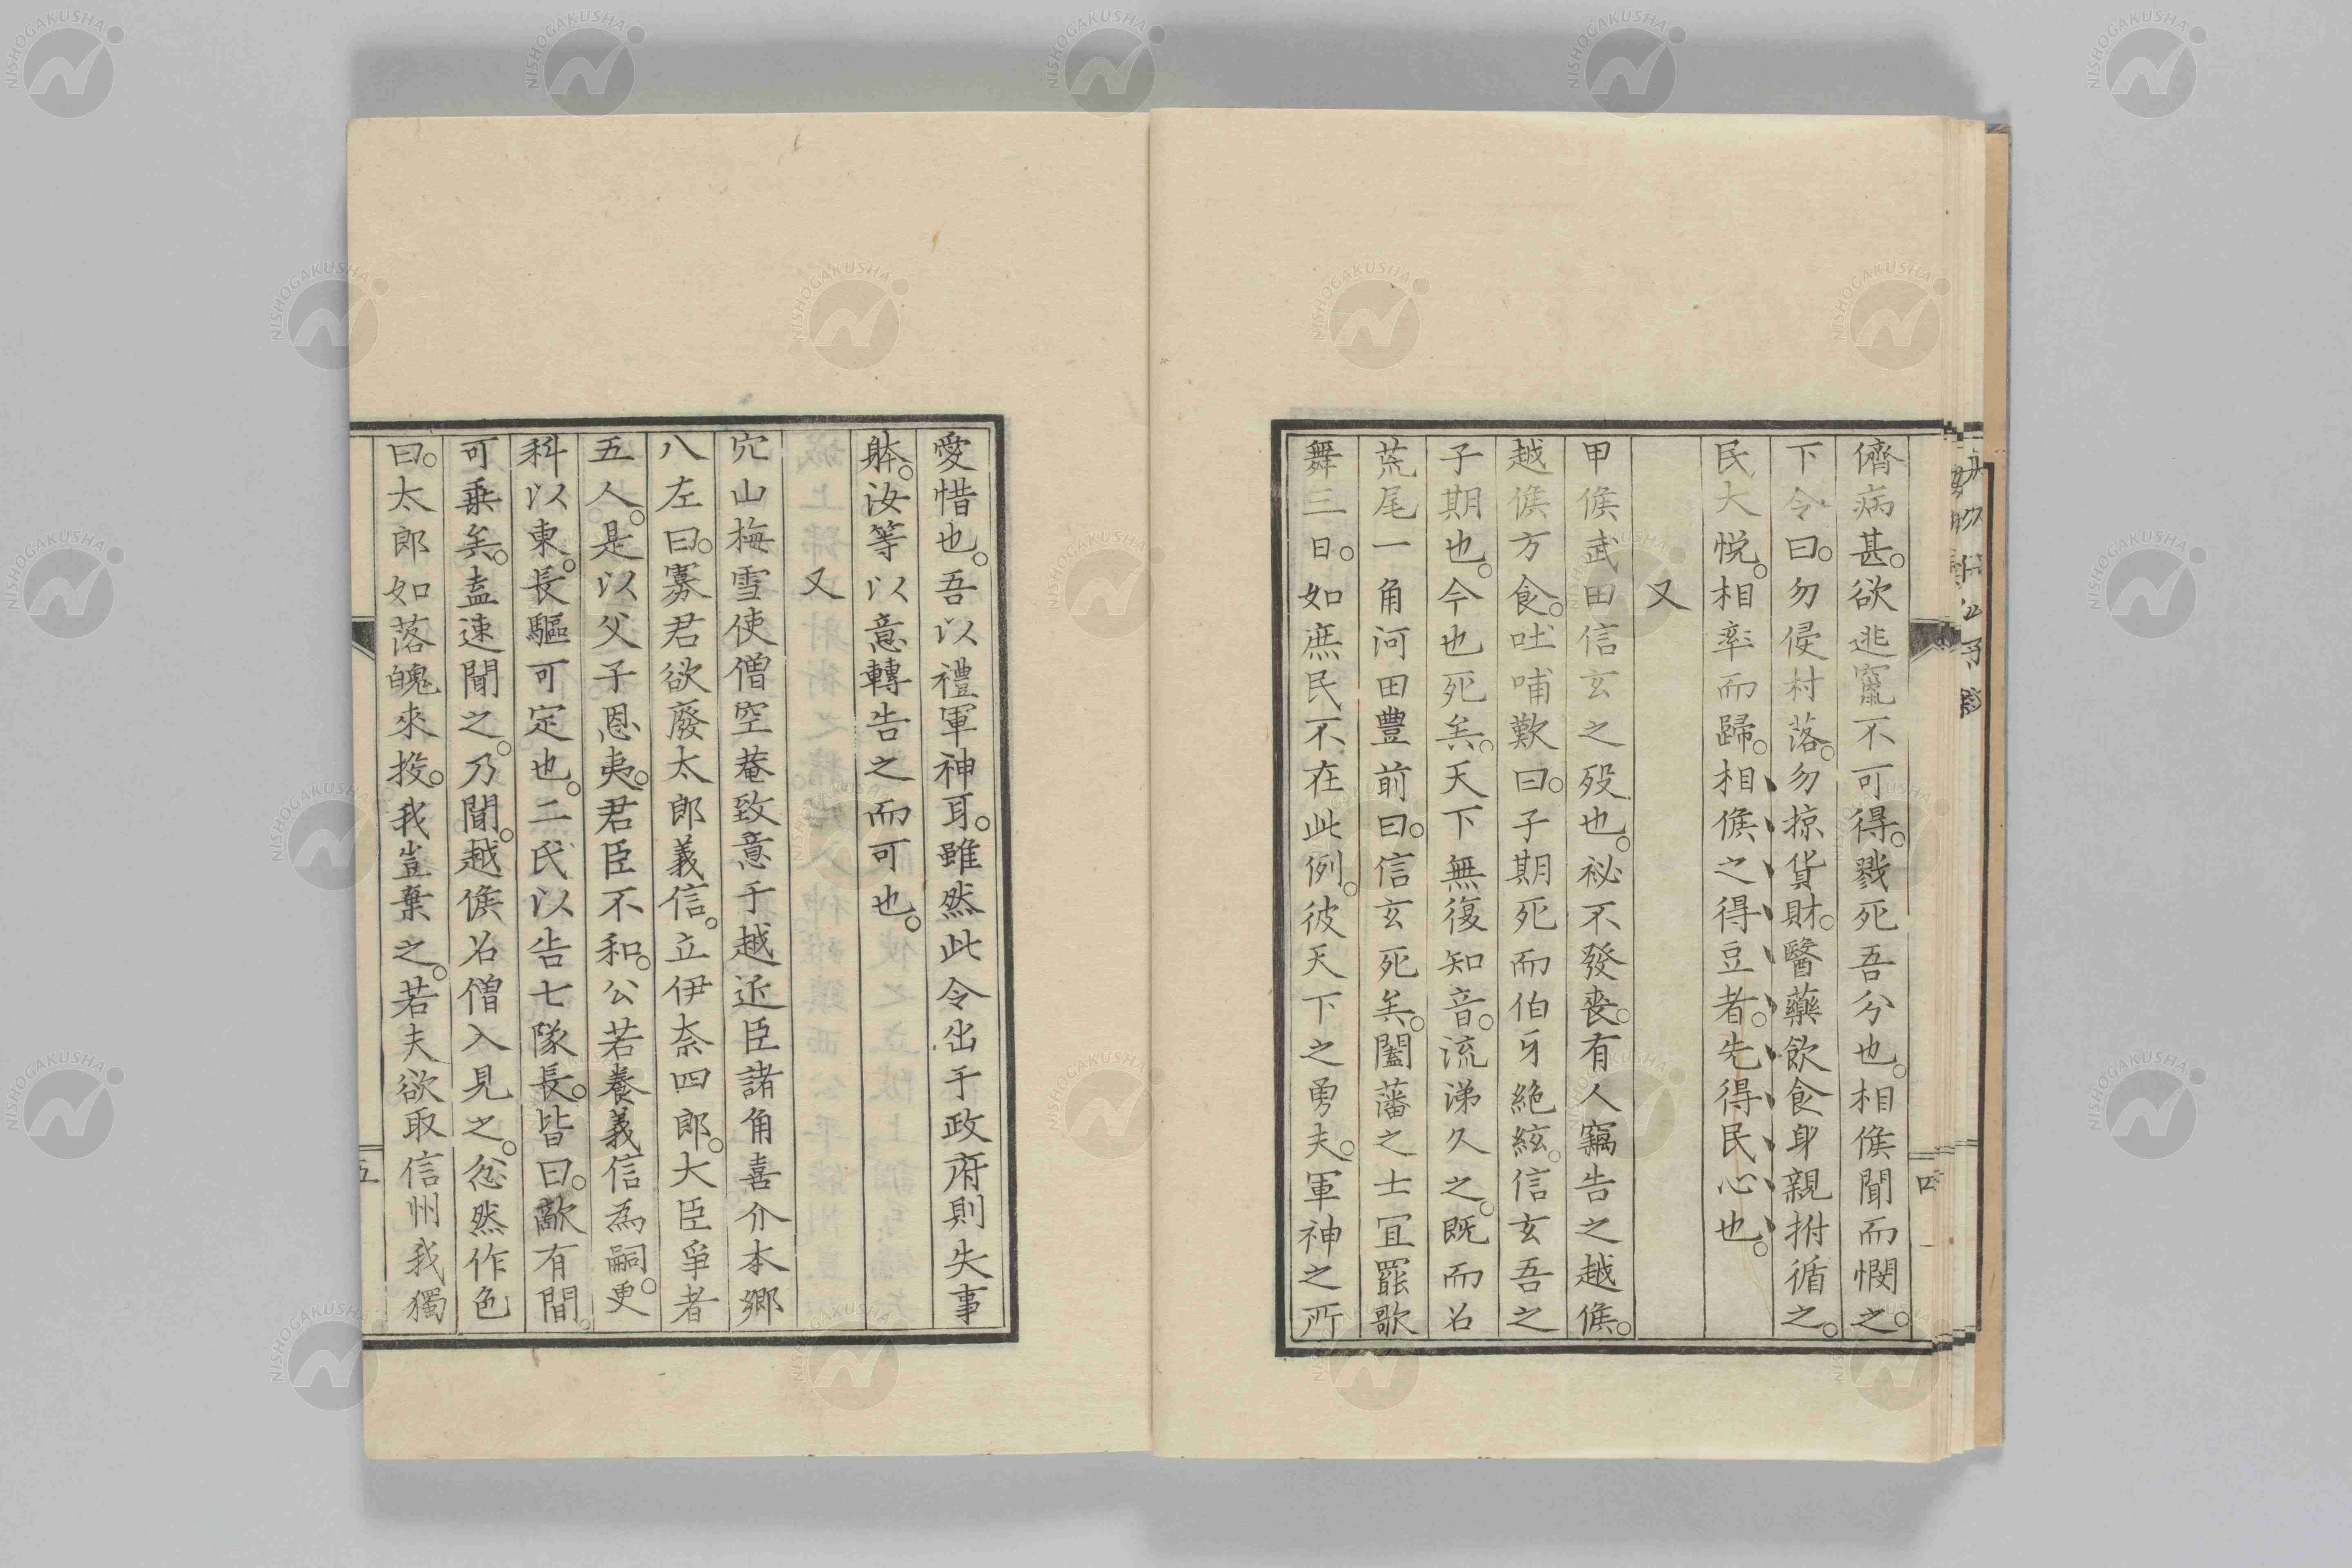 儕病甚。欲逃竄不可得。戮死吾分也。相侯聞而憫之。
下令曰。勿侵村落。勿掠貨財。醫藥飲食身親拊循之。
民大悦。相率而歸。相侯之得豆者。先得民心也。
又
甲侯武田信玄之歿也。祕不發喪。有人竊告之越侯。
越侯方食。吐哺歎曰。子期死而伯牙絶絃。信玄吾之
子期也。今也死矣。天下無復知音。流涕久之。既而召
荒尾一角河田豐前曰。信玄死矣。闔藩之士宜罷歌
舞三日。如庶民不在此例。彼天下之勇夫。軍神之所
四
愛惜也。吾以禮軍神耳。雖然此令出于政府則失事
躰。汝等以意轉告之而可也。
又
穴山梅雪使僧空菴致意于越近臣諸角喜介本鄉
八左曰。寡君欲廢太郎義信。立伊奈四郎。大臣爭者
五人。是以父子恩夷。君臣不和。公若養義信為嗣。更
科以東。長驅可定也。二氏以告七隊長。皆曰。敵有間。
可乗矣。盍速聞之。乃聞。越侯召僧入見之。忿然作色
曰。太郎如落魄來投。我豈棄之。若夫欲取信州我獨
五
NISHOGAKUSHA